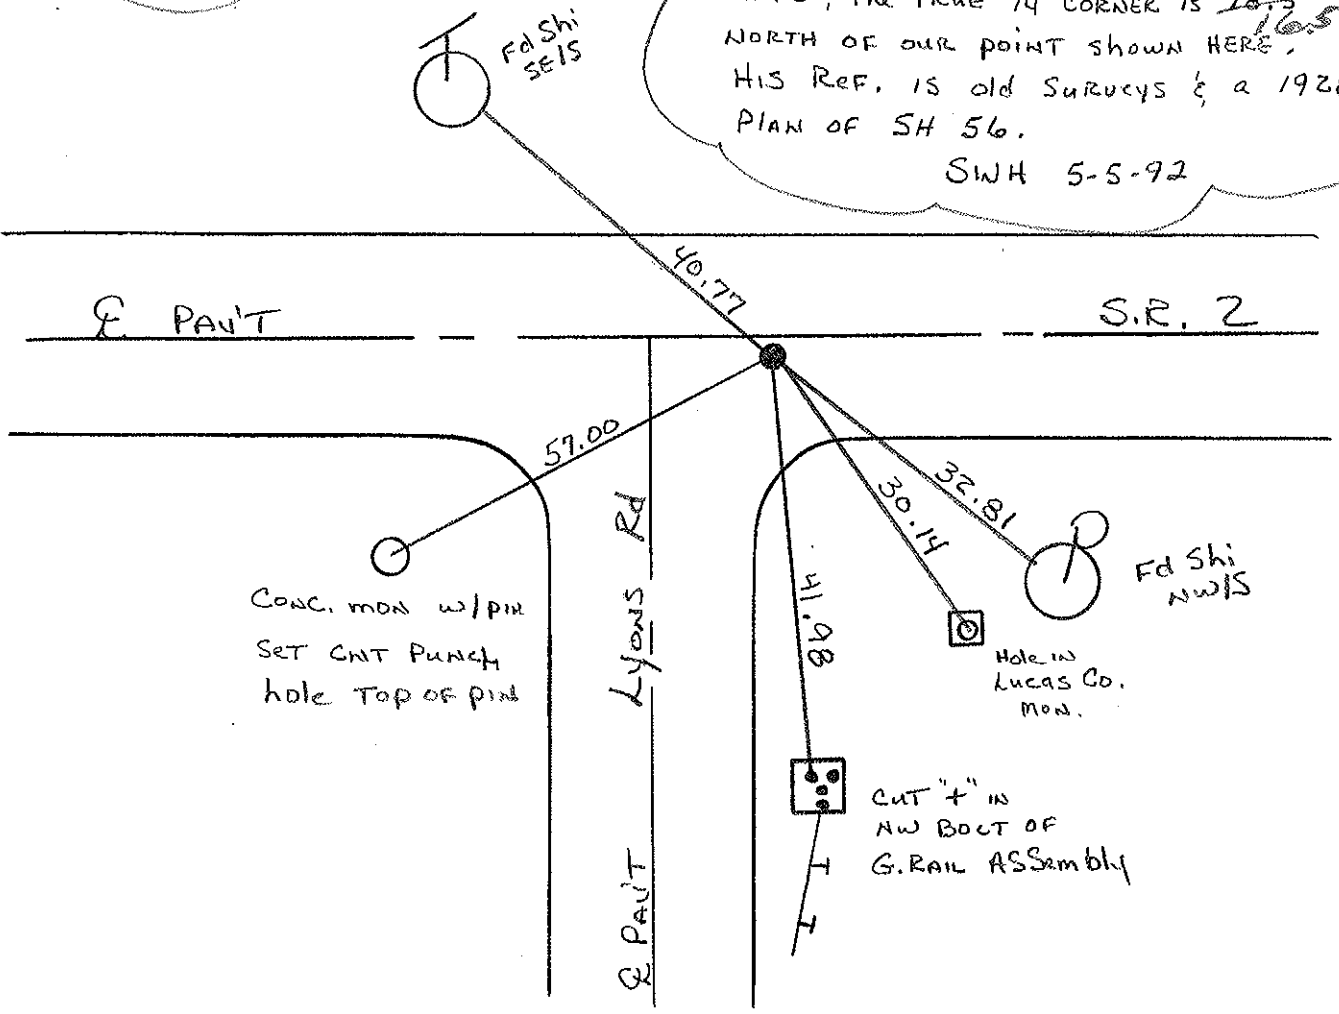 THE TRUE 1/4 CORNER IS
16.5
NORTH OF OUR POINT SHOWN HERE.
HIS REF. IS old SURVEYS & a
PLAN OF SH 56.
SWH 5-5-92
Fd Shi
SE/S
40.77
℄ PAV'T
S.R. 2
57.00
32.81
30.14
41.98
Lyons Rd
℄ PAV'T
Fd Shi
NW/S
CONC. MON w/PIN
SET CNT PUNCH
hole TOP OF PIN
Hole IN
Lucas Co.
MON.
CUT "+" IN
NW BOLT OF
G.RAIL ASSembly